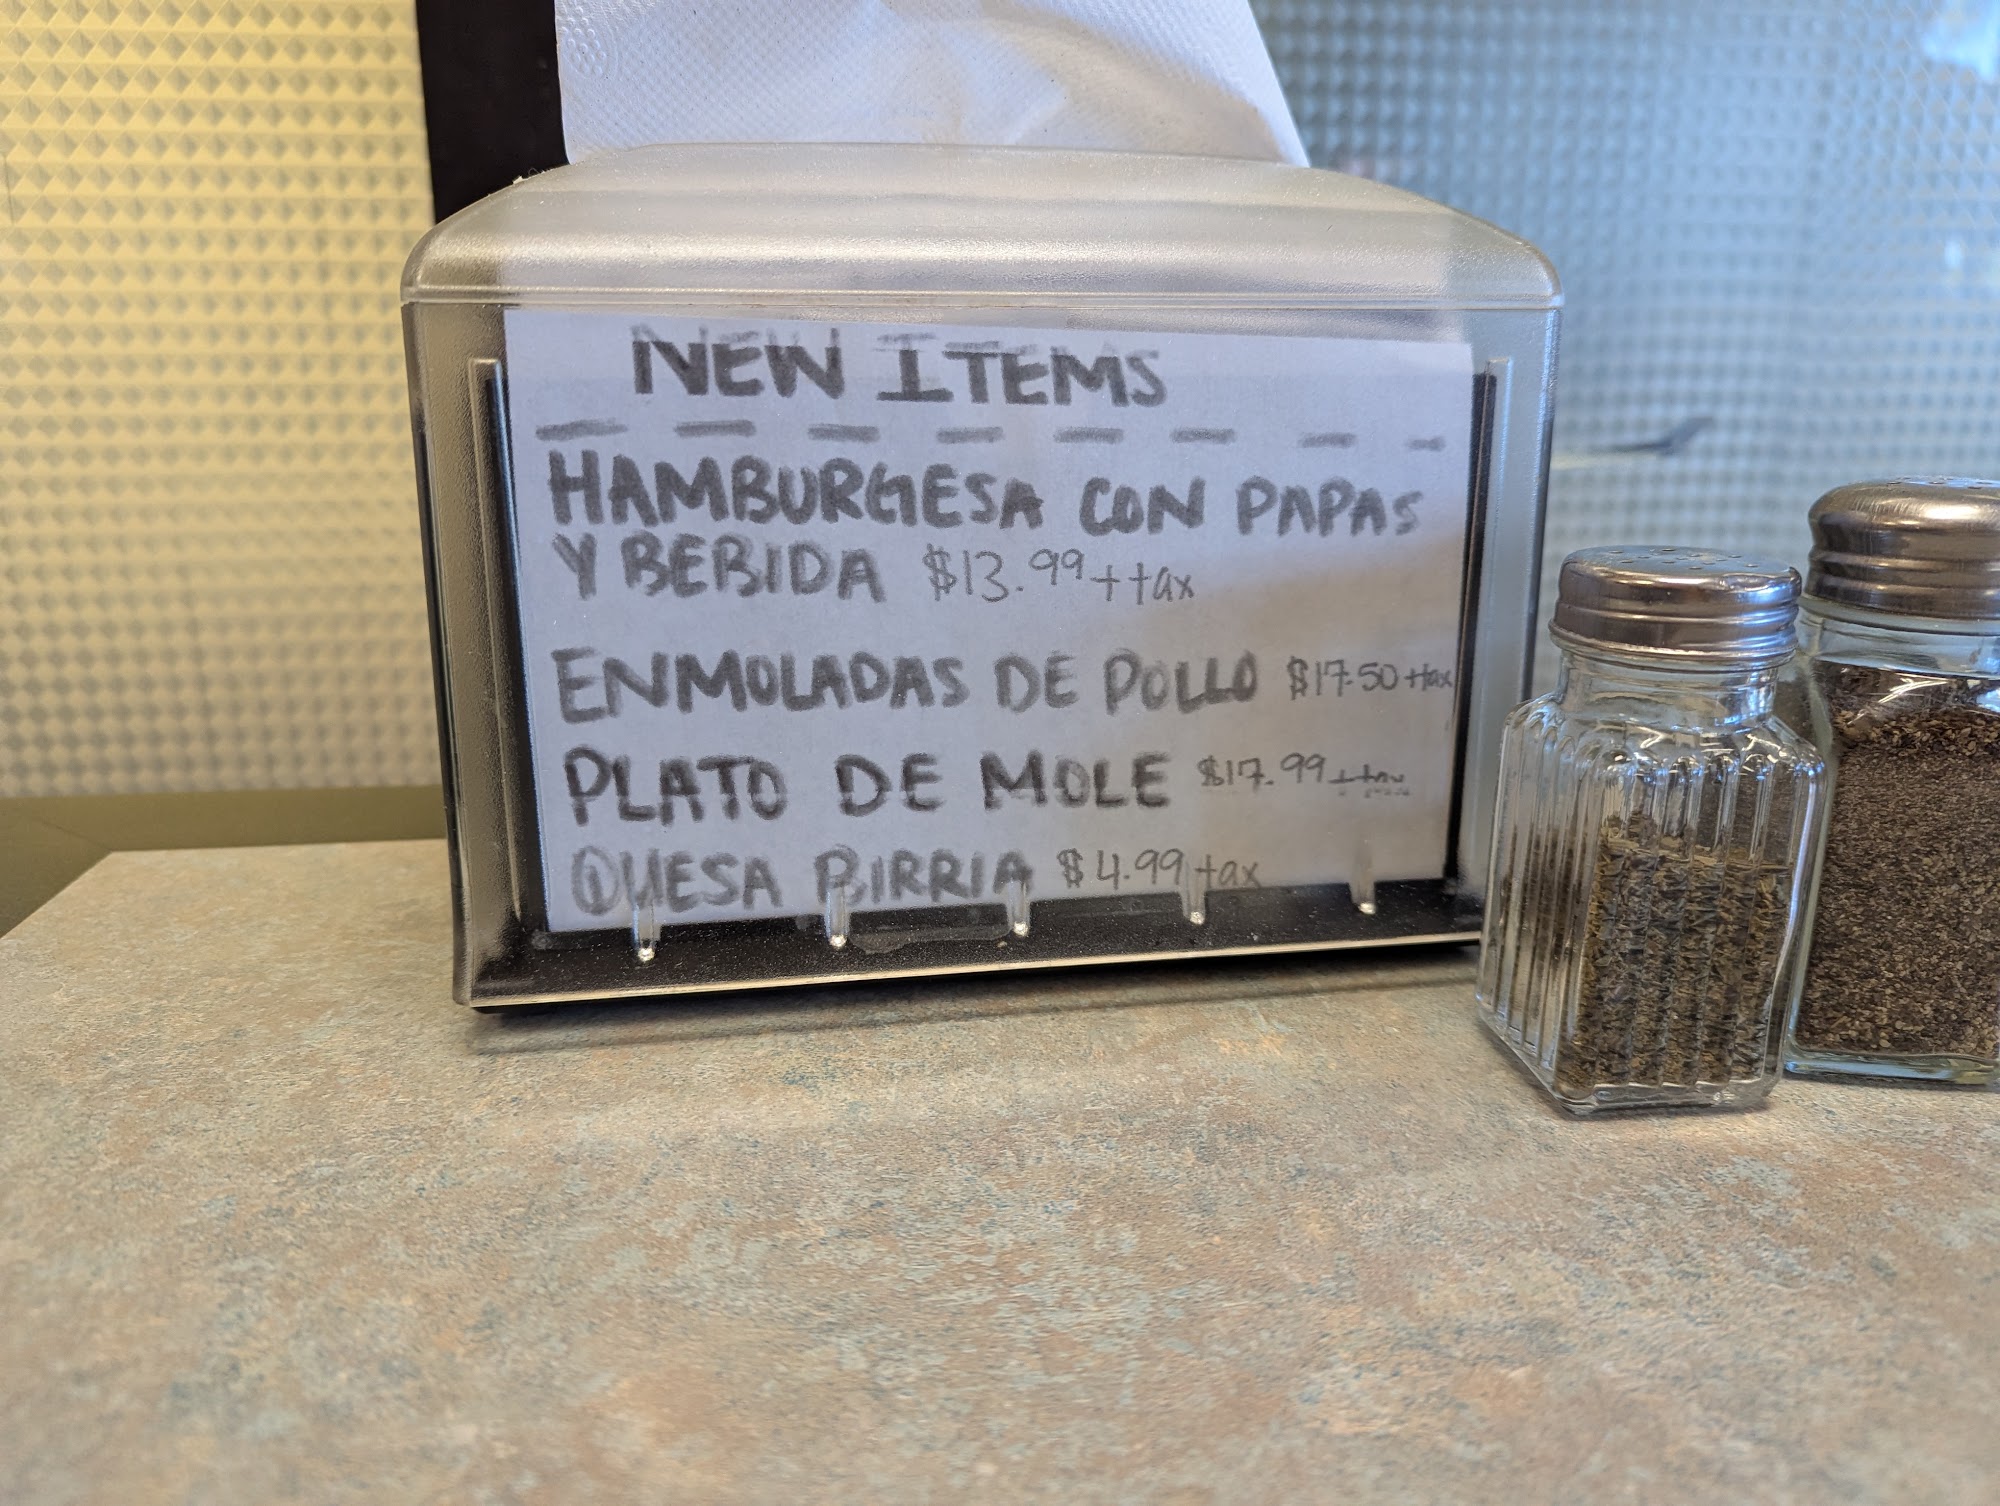 NEW ITEMS
HAMBURGESA CON PAPAS
Y BEBIDA $13.99 + tax
ENMOLADAS DE POLLO $17.50 + tax
PLATO DE MOLE $17.99 + tax
QUESA BIRRIA $4.99 + tax